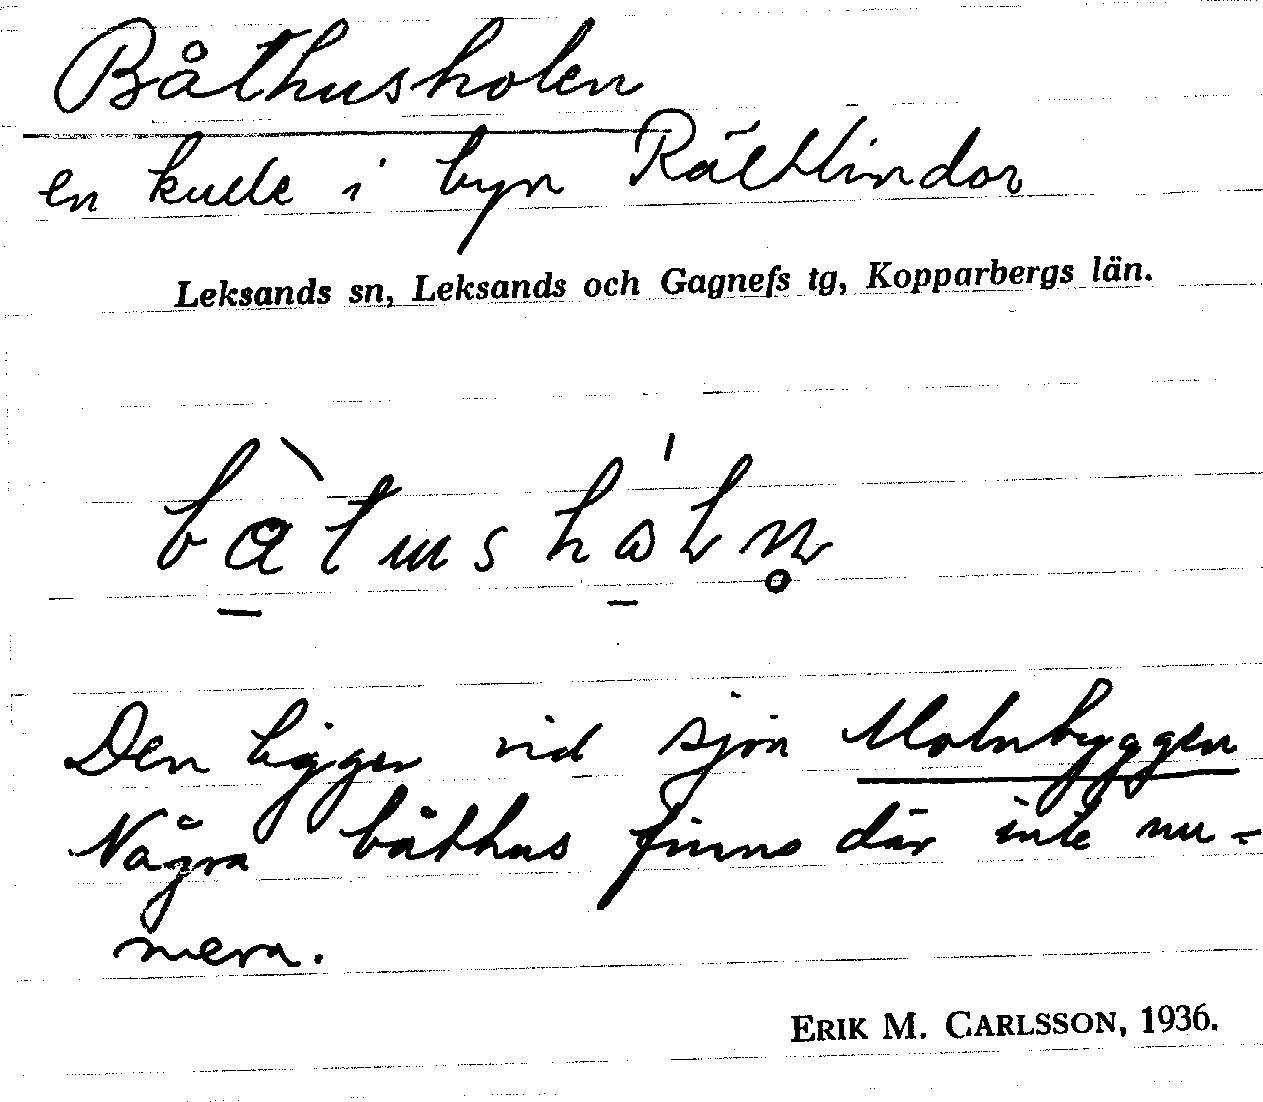 Båthusholen
en kulle i byn Rältlindor
Leksands sn, Leksands och Gagnefs tg, Kopparbergs län.
bàtusho̍ln̥
Den ligger vid sjön Molnbyggen
Några båthus finns där inte nu=
mera.
ERIK M. CARLSSON, 1936.